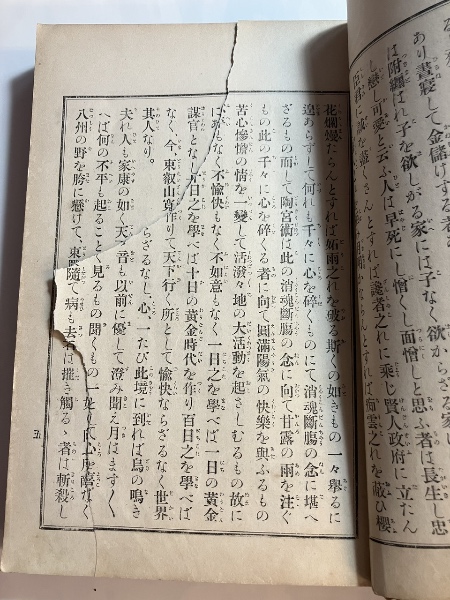 あり晝寢して金儲けする者
は附纏はれ子を欲しがる家には子なく欲からざる家
し戀し可愛と云ふ人は早死にし憎くし面憎しと思ふ者は長生し忠
臣君に誠を盡くさんとすれば讒者之れに乘じ賢人政府に立たん
ならんとすれば雲之れを蔽ひ櫻
花爛熳たらんとすれば妬雨之れを破る斯くの如きもの一々擧るに
遑あらずして何れも千々に心を碎くものにて消魂斷膓の念に堪へ
ざるもの而して陶宮術は此の消魂斷膓の念に向て甘露の雨を注ぐ
もの此の千々に心を碎くる者に向て圓滿陽氣の快樂を與ふるもの
苦心慘憺の情を一變して活潑々地の大活動を起さしむるもの故に
に苦もなく不愉快もなく不如意もなく一日之を學べば一日の黃金
となり十日之を學べば十日の黃金時代を作り百日之を學べば
なく、今、東叡山寛作りて天下行く所として愉快ならざるなく世界
其人なり。らざるなし、心、一たび此境に到れば鳥の鳴き
夫れ人も家康の如く天音も以前に優して澄み聞え月はますく
へば何の不平も起ることく見るもの聞くもの一
八州の野を胯に懸けて、東隨て病も去は推き觸る者は斬殺し
五